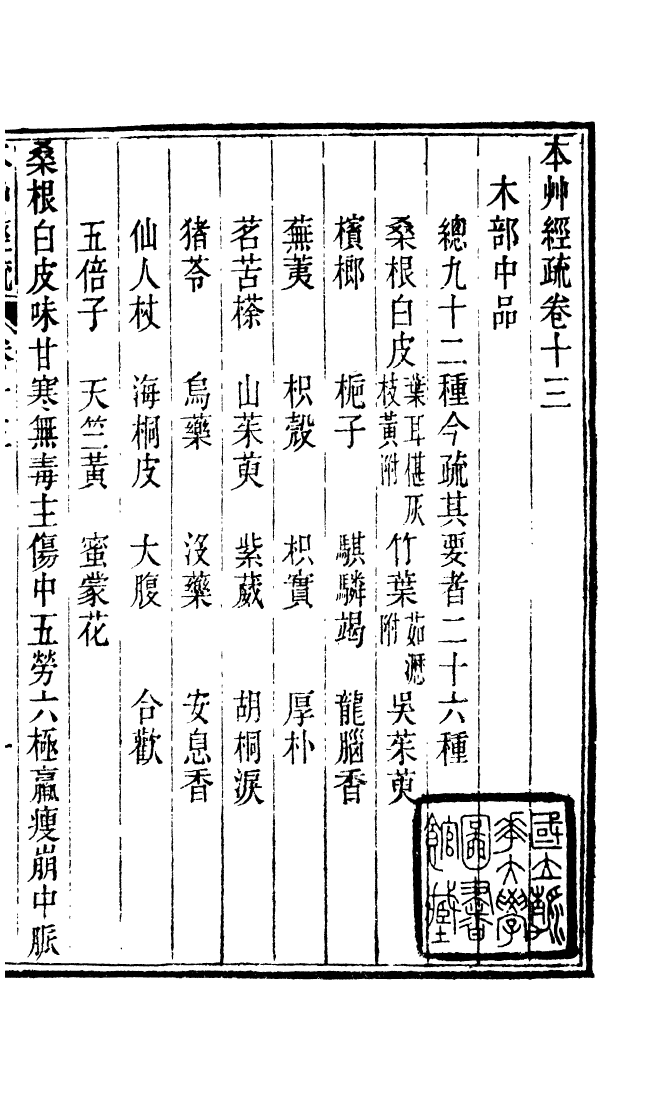 本艸經疏卷十三
木部中品
總九十二種今疏其要者二十六種
桑根白皮葉耳椹灰枝黃附 竹葉茹瀝附 吳茱萸
檳榔 梔子 騏驎竭 龍腦香
蕪荑 枳殼 枳實 厚朴
茗苦𣘻 山茱萸 紫葳 胡桐淚
猪苓 烏藥 沒藥 安息香
仙人杖 海桐皮 大腹 合歡
五倍子 天竺黃 蜜蒙花
桑根白皮味甘寒無毒主傷中五勞六極羸瘦崩中脈
國立清華大學圖書館藏